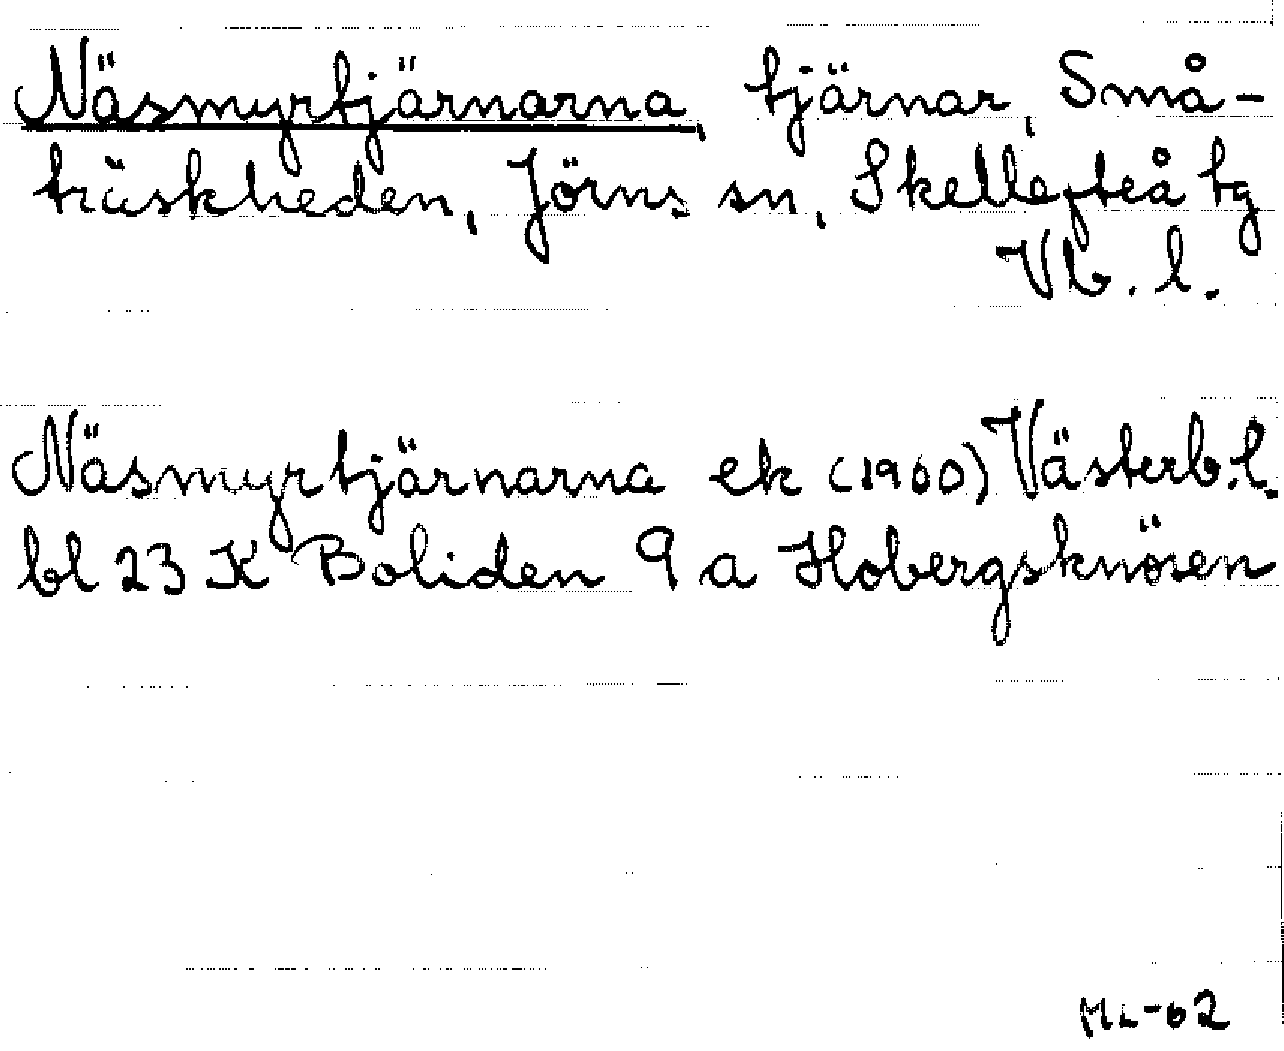 Näsmyrtjärnarna, tjärnar, Små-
träskheden, Jörns sn, Skellefteå tg
Vb. l.
Näsmyrtjärnarna ek (1960) Västerb.l.
bl 23 K Boliden 9 a Hobergsknösen